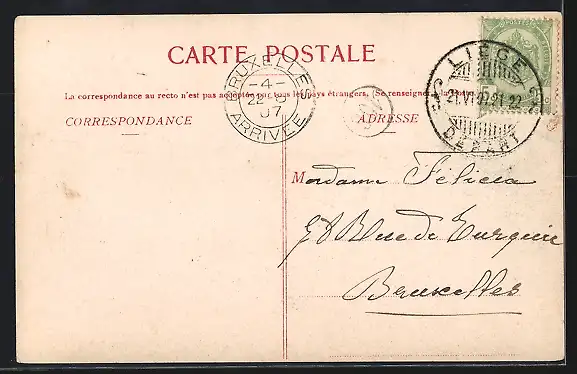 CARTE POSTALE
La correspondance au recto n'est pas acceptée par tous les pays étrangers. (Se renseigner à la Poste)
CORRESPONDANCE
ADRESSE
BRUXELLES
-4-
07
ARRIVÉE
LIEGE
DEPART
POSTES
Madame Félicia
Rue de
Bruxelles